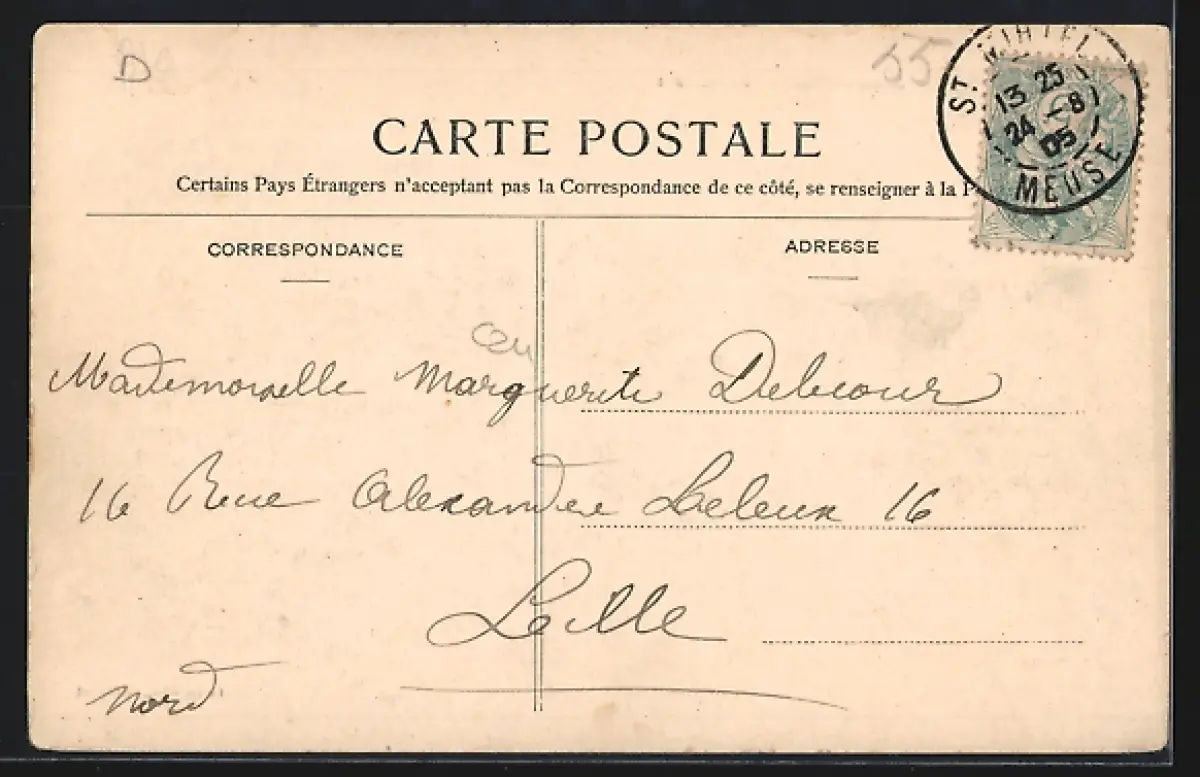 D
55
ST MIHIEL
13 25
24 -8
05
MEUSE
CARTE POSTALE
Certains Pays Étrangers n'acceptant pas la Correspondance de ce côté, se renseigner à la P
CORRESPONDANCE
ADRESSE
Mademoiselle Marguerite Delecour
16 Rue Alexandre Leleux 16
Lille
Nord